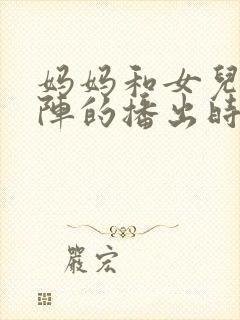 妈妈和女兒
陣的播出時
嚴宏